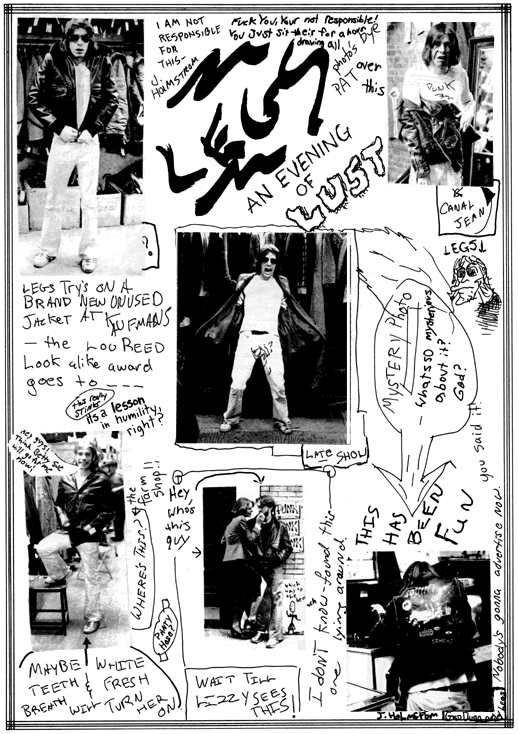 I AM NOT
RESPONSIBLE
FOR
THIS-
J.
HOLMSTROM
Fuck You, Your not responsible!
You Just sit their for a ½ hour
drawing all
photo's
PAT
over
this
LEGS
AN EVENING
OF
LUST
PUNK
&
CANAL
JEAN
LEGS↓
LEGS TRY'S ON A
BRAND NEW UNUSED
JACKET AT KAUFMANS
— the LOU REED
Look alike award
goes to ----
this really
STINKS
its a lesson
in humility,
right?
MYSTERY PHOTO
- whats so mysterious
about it?
God?
you said it!
LATE SHOW
THIS
HAS
BEEN
FUN
Nobody's gonna advertise now.
no guys!
Think Betty Sue
will go for me
now!
WHERE'S THIS?
the
farm
shop!!
Hey,
who's
this
guy
PUNK
I don't know-found this
one lying around
MAYBE WHITE
TEETH & FRESH
BREATH WILL TURN
HER ON
WAIT TILL
LIZZY SEES
THIS!
J. HOLMSTROM